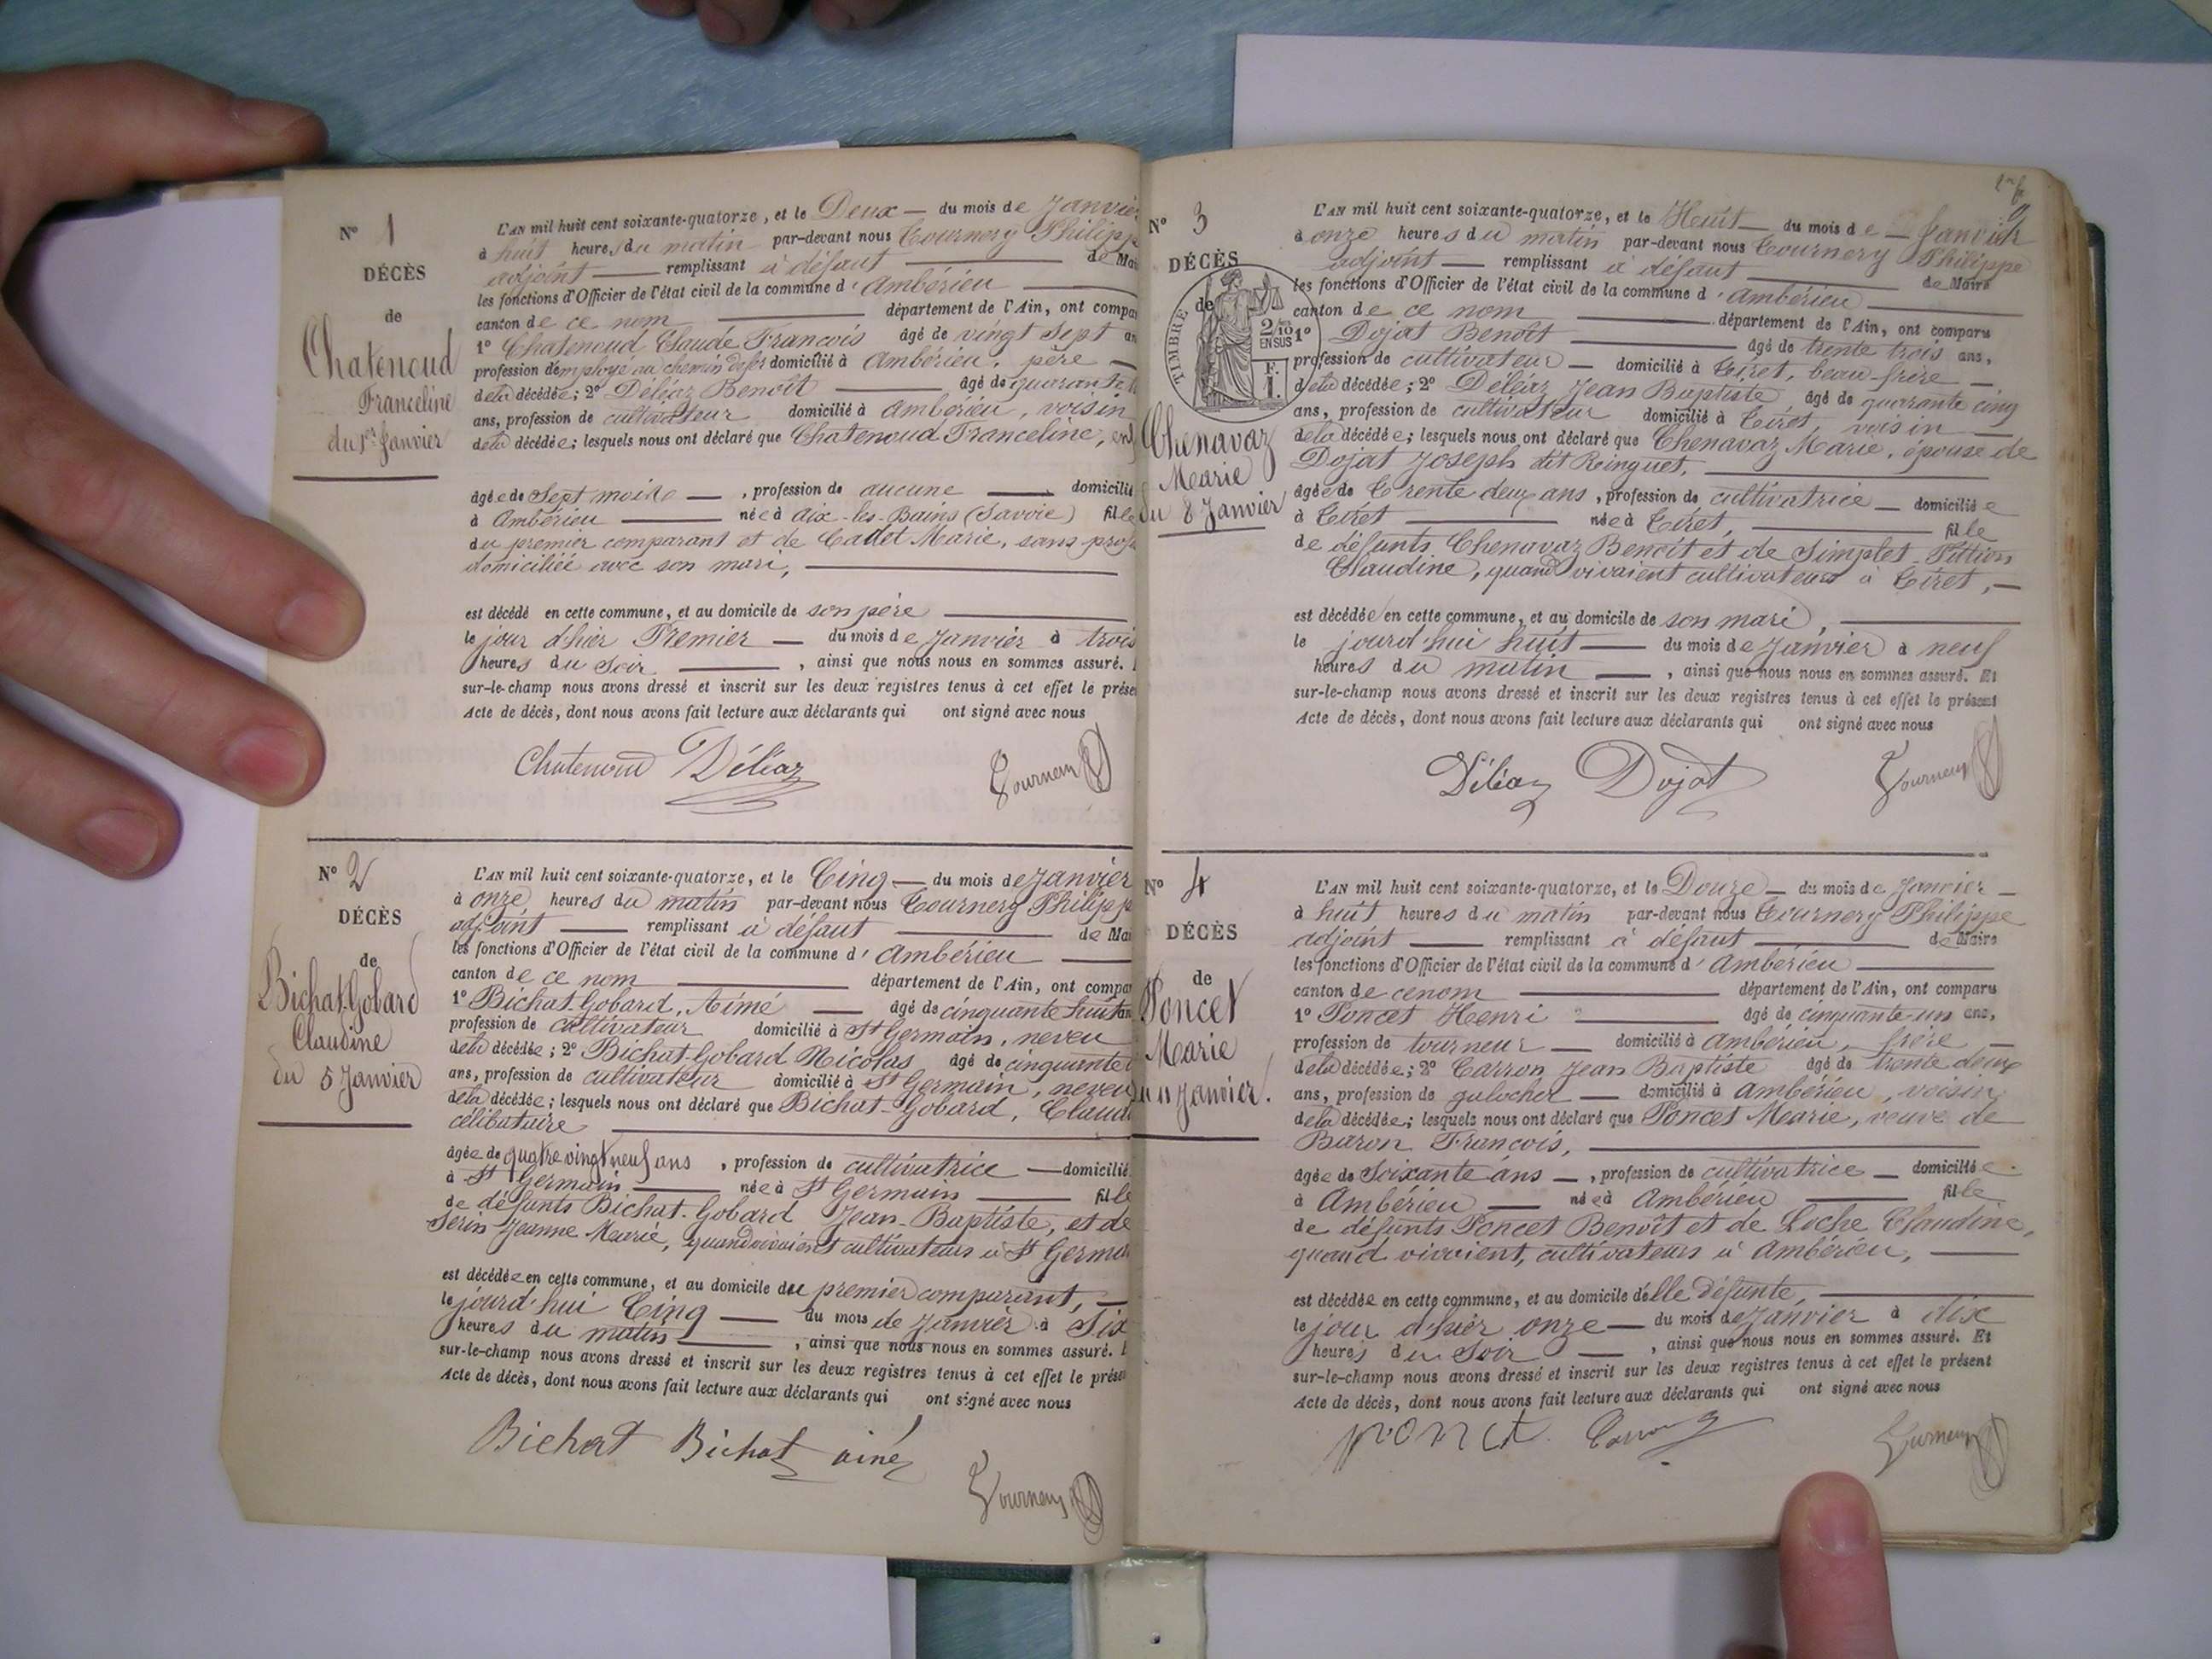 N° 1
DÉCÈS
de
Chatenoud
Franceline
du 1er Janvier
L'AN mil huit cent soixante-quatorze, et le Deux — du mois de Janvier
à huit heures du matin par-devant nous Tournery Philippe
adjoint — remplissant à défaut — de Mai
les fonctions d'Officier de l'état civil de la commune d'Ambérieu —
canton de ce nom — département de l'Ain, ont compa
1° Chatenoud Claude François âgé de vingt sept an
profession d'employé au chemin de fer domicilié à Ambérieu, père —
de la décédée; 2° Déléaz Benoît — âgé de quarante
ans, profession de cultivateur domicilié à Ambérieu, voisin
de la décédée; lesquels nous ont déclaré que Chatenoud Franceline, enf
âgée de Sept mois — , profession de aucune — domicilié
à Ambérieu — née à Aix-les-Bains (Savoie) fille
du premier comparant et de Cadet Marie, sans prof
domiciliée avec son mari, —
est décédé en cette commune, et au domicile de son père —
le jour d'hier Premier — du mois de Janvier à trois
heures du soir — , ainsi que nous nous en sommes assuré.
sur-le-champ nous avons dressé et inscrit sur les deux registres tenus à cet effet le prése
Acte de décès, dont nous avons fait lecture aux déclarants qui ont signé avec nous
Chatenoud Déléaz Tournery
N° 2
DÉCÈS
de
Bichat-Gobard
Claudine
du 5 Janvier
L'AN mil huit cent soixante-quatorze, et le Cinq — du mois de Janvier
à onze heures du matin par-devant nous Tournery Philipp
adjoint — remplissant à défaut — de Mai
les fonctions d'Officier de l'état civil de la commune d'Ambérieu —
canton de ce nom — département de l'Ain, ont compa
1° Bichat-Gobard, Aimé — âgé de cinquante huit an
profession de cultivateur domicilié à St Germain, neveu
de la décédée; 2° Bichat-Gobard Nicolas âgé de cinquante
ans, profession de cultivateur domicilié à St Germain, neveu
de la décédée; lesquels nous ont déclaré que Bichat-Gobard, Claud
célibataire —
âgée de quatre vingt neuf ans , profession de cultivatrice — domicilié
à St Germain — née à St Germain — fille
de défunts Bichat-Gobard Jean-Baptiste, et de
Serin Jeanne Marie, quand vivaient cultivateurs à St Germa
est décédée en cette commune, et au domicile du premier comparant, —
le jourd'hui Cinq — du mois de Janvier à Six
heures du matin — , ainsi que nous nous en sommes assuré.
sur-le-champ nous avons dressé et inscrit sur les deux registres tenus à cet effet le prése
Acte de décès, dont nous avons fait lecture aux déclarants qui ont signé avec nous
Bichat Bichat ainé
Tournery
N° 3
DÉCÈS
de
TIMBRE
2/10
EN SUS
F.
1.
Chenavaz
Marie
du 8 Janvier
L'AN mil huit cent soixante-quatorze, et le Huit — du mois de — Janvier
à onze heures du matin par-devant nous Tournery Philippe
adjoint — remplissant à défaut — de Maire
les fonctions d'Officier de l'état civil de la commune d'Ambérieu —
canton de ce nom — département de l'Ain, ont comparu
1° Dojat Benoît — âgé de trente trois ans,
profession de cultivateur — domicilié à Tiret, beau-frère —
de la décédée; 2° Déléaz Jean Baptiste âgé de quarante cinq
ans, profession de cultivateur domicilié à Tiret, voisin —
de la décédée; lesquels nous ont déclaré que Chenavaz Marie, épouse de
Dojat Joseph dit Ringuet, —
âgée de Trente deux ans , profession de cultivatrice — domiciliée
à Tiret — née à Tiret, — fille
de défunts Chenavaz Benoît et de Simplet-Pittion
Claudine, quand vivaient cultivateurs à Tiret, —
est décédée en cette commune, et au domicile de son mari, —
le jourd'hui huit — du mois de Janvier à neuf
heures du matin — , ainsi que nous nous en sommes assuré. Et
sur-le-champ nous avons dressé et inscrit sur les deux registres tenus à cet effet le présent
Acte de décès, dont nous avons fait lecture aux déclarants qui ont signé avec nous
Déléaz Dojat Tournery
N° 4
DÉCÈS
de
Poncet
Marie
du 11 Janvier.
L'AN mil huit cent soixante-quatorze, et le Douze — du mois de Janvier —
à huit heures du matin par-devant nous Tournery Philippe
adjoint — remplissant à défaut — de Maire
les fonctions d'Officier de l'état civil de la commune d'Ambérieu —
canton de ce nom — département de l'Ain, ont comparu
1° Poncet Henri — âgé de cinquante-un ans,
profession de tourneur — domicilié à Ambérieu, frère —
de la décédée; 2° Carron Jean Baptiste âgé de trente deux
ans, profession de galocher — domicilié à Ambérieu, voisin
de la décédée; lesquels nous ont déclaré que Poncet Marie, veuve de
Baron François, —
âgée de Soixante ans — , profession de cultivatrice — domiciliée
à Ambérieu — née à Ambérieu — fille
de défunts Poncet Benoît et de Loche Claudine,
quand vivaient, cultivateurs à Ambérieu, —
est décédée en cette commune, et au domicile d'elle défunte, —
le jour d'hier onze — du mois de Janvier à dix
heures du soir — , ainsi que nous nous en sommes assuré. Et
sur-le-champ nous avons dressé et inscrit sur les deux registres tenus à cet effet le présent
Acte de décès, dont nous avons fait lecture aux déclarants qui ont signé avec nous
poncet Carron Tournery